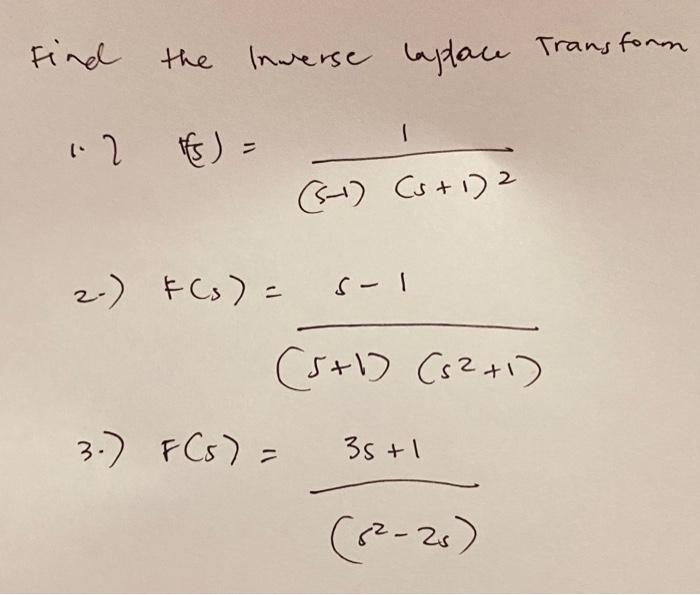 Find the Inverse Laplace Transform
1.) F(s) = 1
(s-1) (s+1)2
2.) F(s) = s-1
(s+1) (s2+1)
3.) F(s) = 3s+1
(s2-2s)